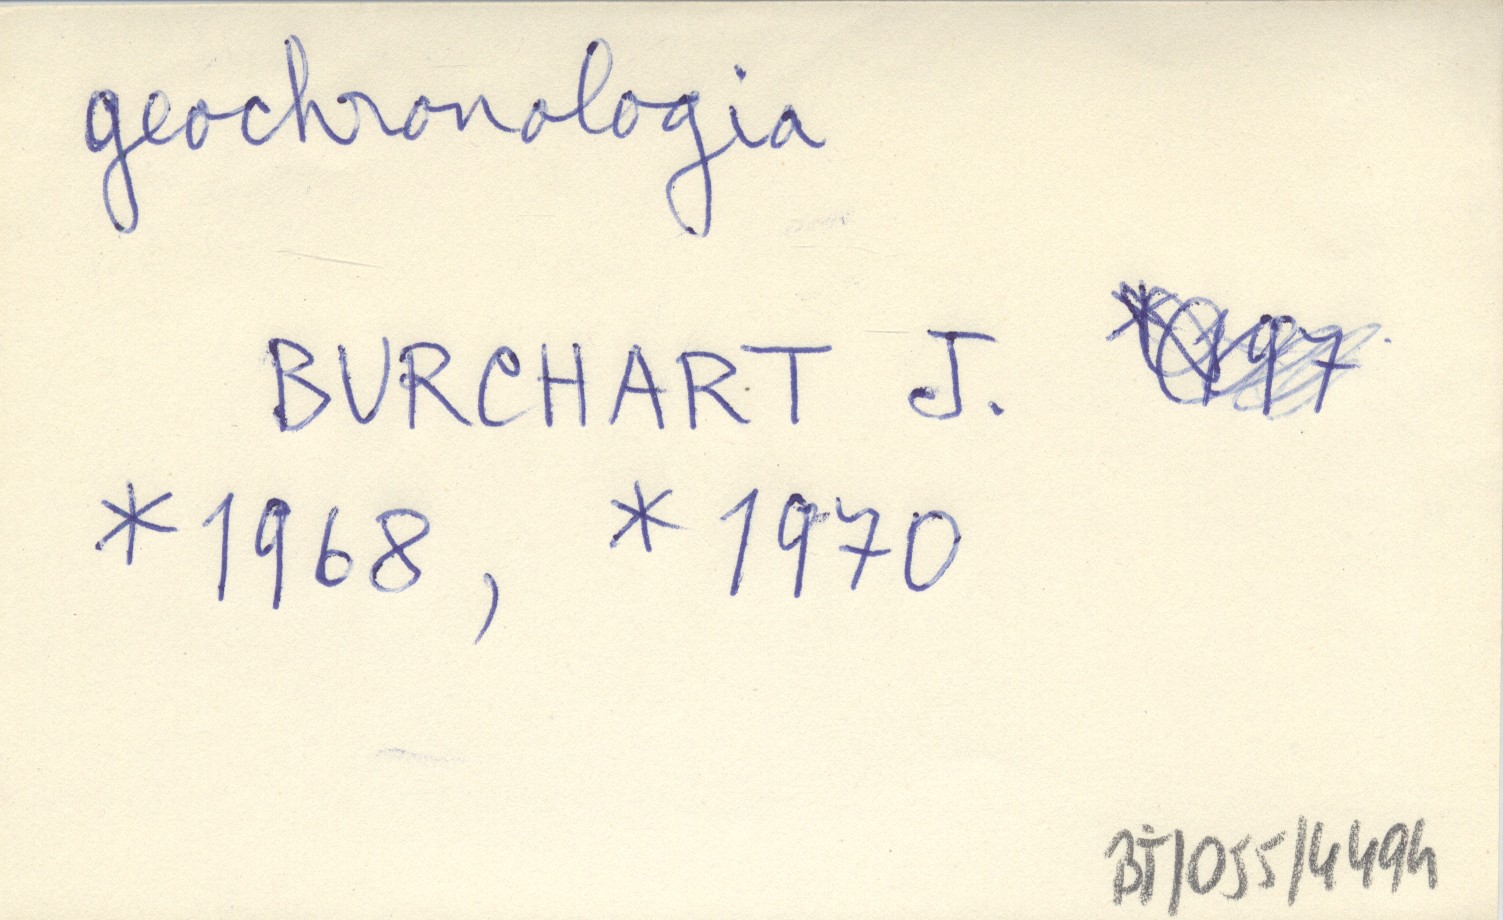 geochronologia
BURCHART J.
*1968, *1970
BT/055/4494